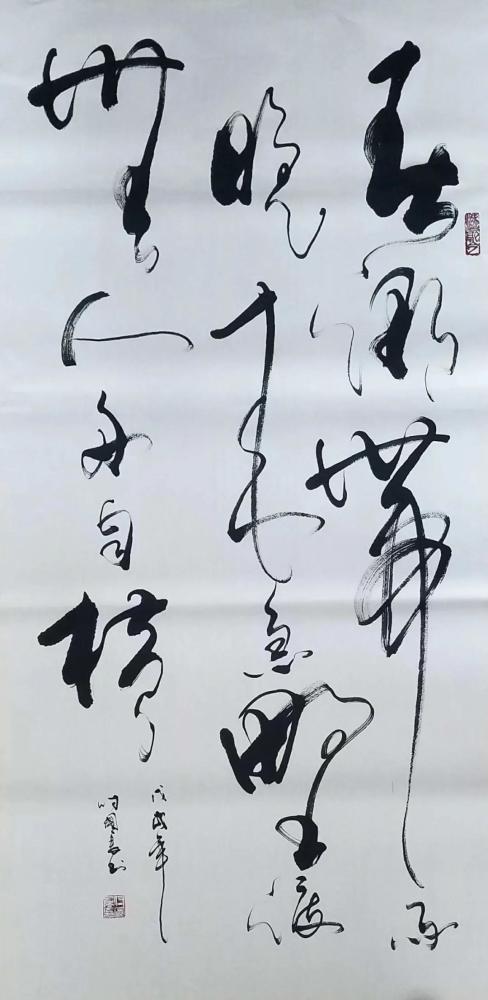 春潮帶雨
晚来急野渡
無人舟自横
戊戌年
书